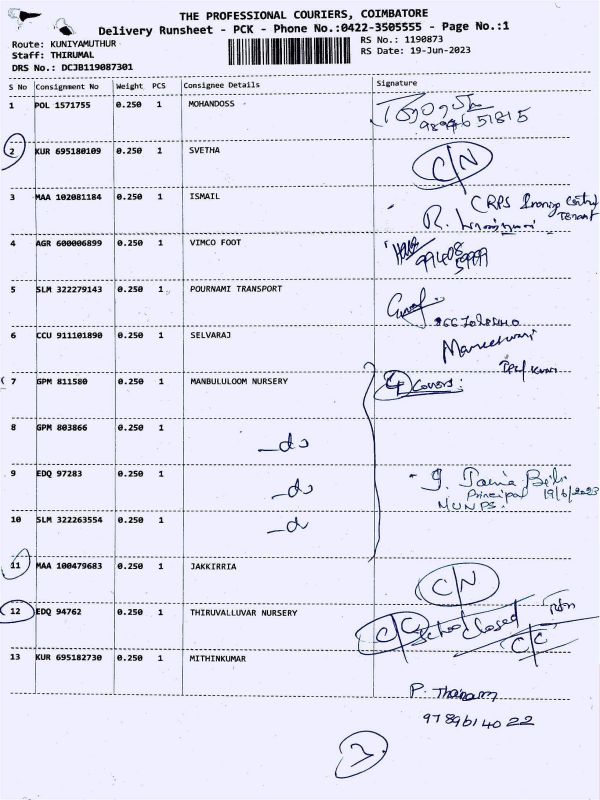 THE PROFESSIONAL COURIERS, COIMBATORE
Delivery Runsheet - PCK - Phone No.:0422-3505555 - Page No.:1
Route: KUNIYAMUTHUR
RS No.: 1190873
Staff: THIRUMAL
RS Date: 19-Jun-2023
DRS No.: DCJB119087301
S No Consignment No Weight PCS Consignee Details Signature
1 POL 1571755 0.250 1 MOHANDOSS
2 KUR 695180109 0.250 1 SVETHA C/N
3 MAA 102081184 0.250 1 ISMAIL CRPS
Tenant
R.
4 AGR 600006899 0.250 1 VIMCO FOOT 99408
59999
5 SLM 322279143 0.250 1 POURNAMI TRANSPORT
6 CCU 911101890 0.250 1 SELVARAJ
7 GPM 811580 0.250 1 MANBULULOOM NURSERY 4 Covers:
8 GPM 803866 0.250 1 -do
9 EDQ 97283 0.250 1 -do
Principal 19/6/2023
MUNPS.
10 SLM 322263554 0.250 1 -do
11 MAA 100479683 0.250 1 JAKKIRRIA C/N
12 EDQ 94762 0.250 1 THIRUVALLUVAR NURSERY C/C School closed
C/C
13 KUR 695182730 0.250 1 MITHINKUMAR
P. Thanam
9789614022